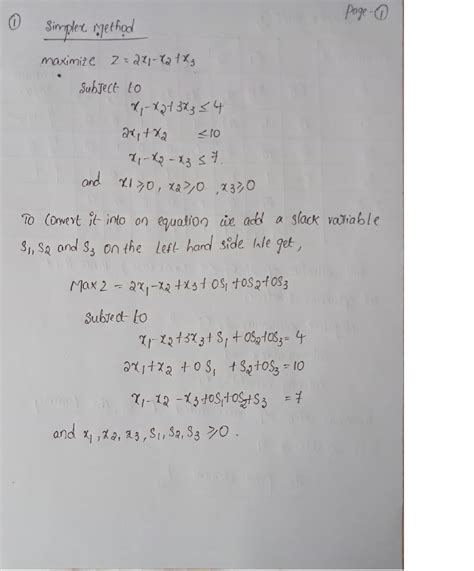 Page-①
① Simplex Method
maximize Z = 2x₁-x₂+x₃
Subject to
x₁-x₂+3x₃ ≤ 4
2x₁+x₂ ≤10
x₁-x₂-x₃ ≤ 7.
and x1 ≥0, x₂≥0, x₃≥0
To Convert it into an equation we add a slack variable
S₁, S₂ and S₃ on the left hand side We get,
Max Z = 2x₁-x₂+x₃+0S₁+0S₂+0S₃
Subject to
x₁-x₂+3x₃+S₁+0S₂+0S₃=4
2x₁+x₂+0S₁+S₂+0S₃=10
x₁-x₂-x₃+0S₁+0S₂+S₃=7
and x₁,x₂,x₃,S₁,S₂,S₃ ≥0.